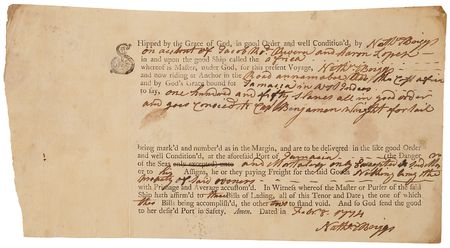 SHipped by the Grace of God, in good Order and well Condition'd, by Nathl Briggs
on account of Jacob Rodz Rivera and Aaron Lopez
in and upon the good Ship called the Africa
whereof is Master, under God, for this present Voyage, Nathl Briggs
and now riding at Anchor in the Road annamaboe the Cost Africa
and by God's Grace bound for Jamaica in West Indies
to say, one hundred and fifty Slaves all in good order
and goes consined to Capt Benjamen Wright for sail
being mark'd and number'd as in the Margin, and are to be delivered in the like good Order
and well Condition'd, at the aforesaid Port of Jamaica (the Danger of
the Seas only excepted) and Mortality only Excepted
or to his Assigns, he or they paying Freight for the said Goods Nothing being the
property of said owners
with Primage and Average accustom'd. In Witness whereof the Master or Purser of the said
Ship hath affirm'd to Bills of Lading, all of this Tenor and Date; the one of which
Bills being accomplish'd, the other to stand void. And so God send the good
to her desir'd Port in Safety, Amen. Dated in Febr 8. 1774
Nathl Briggs